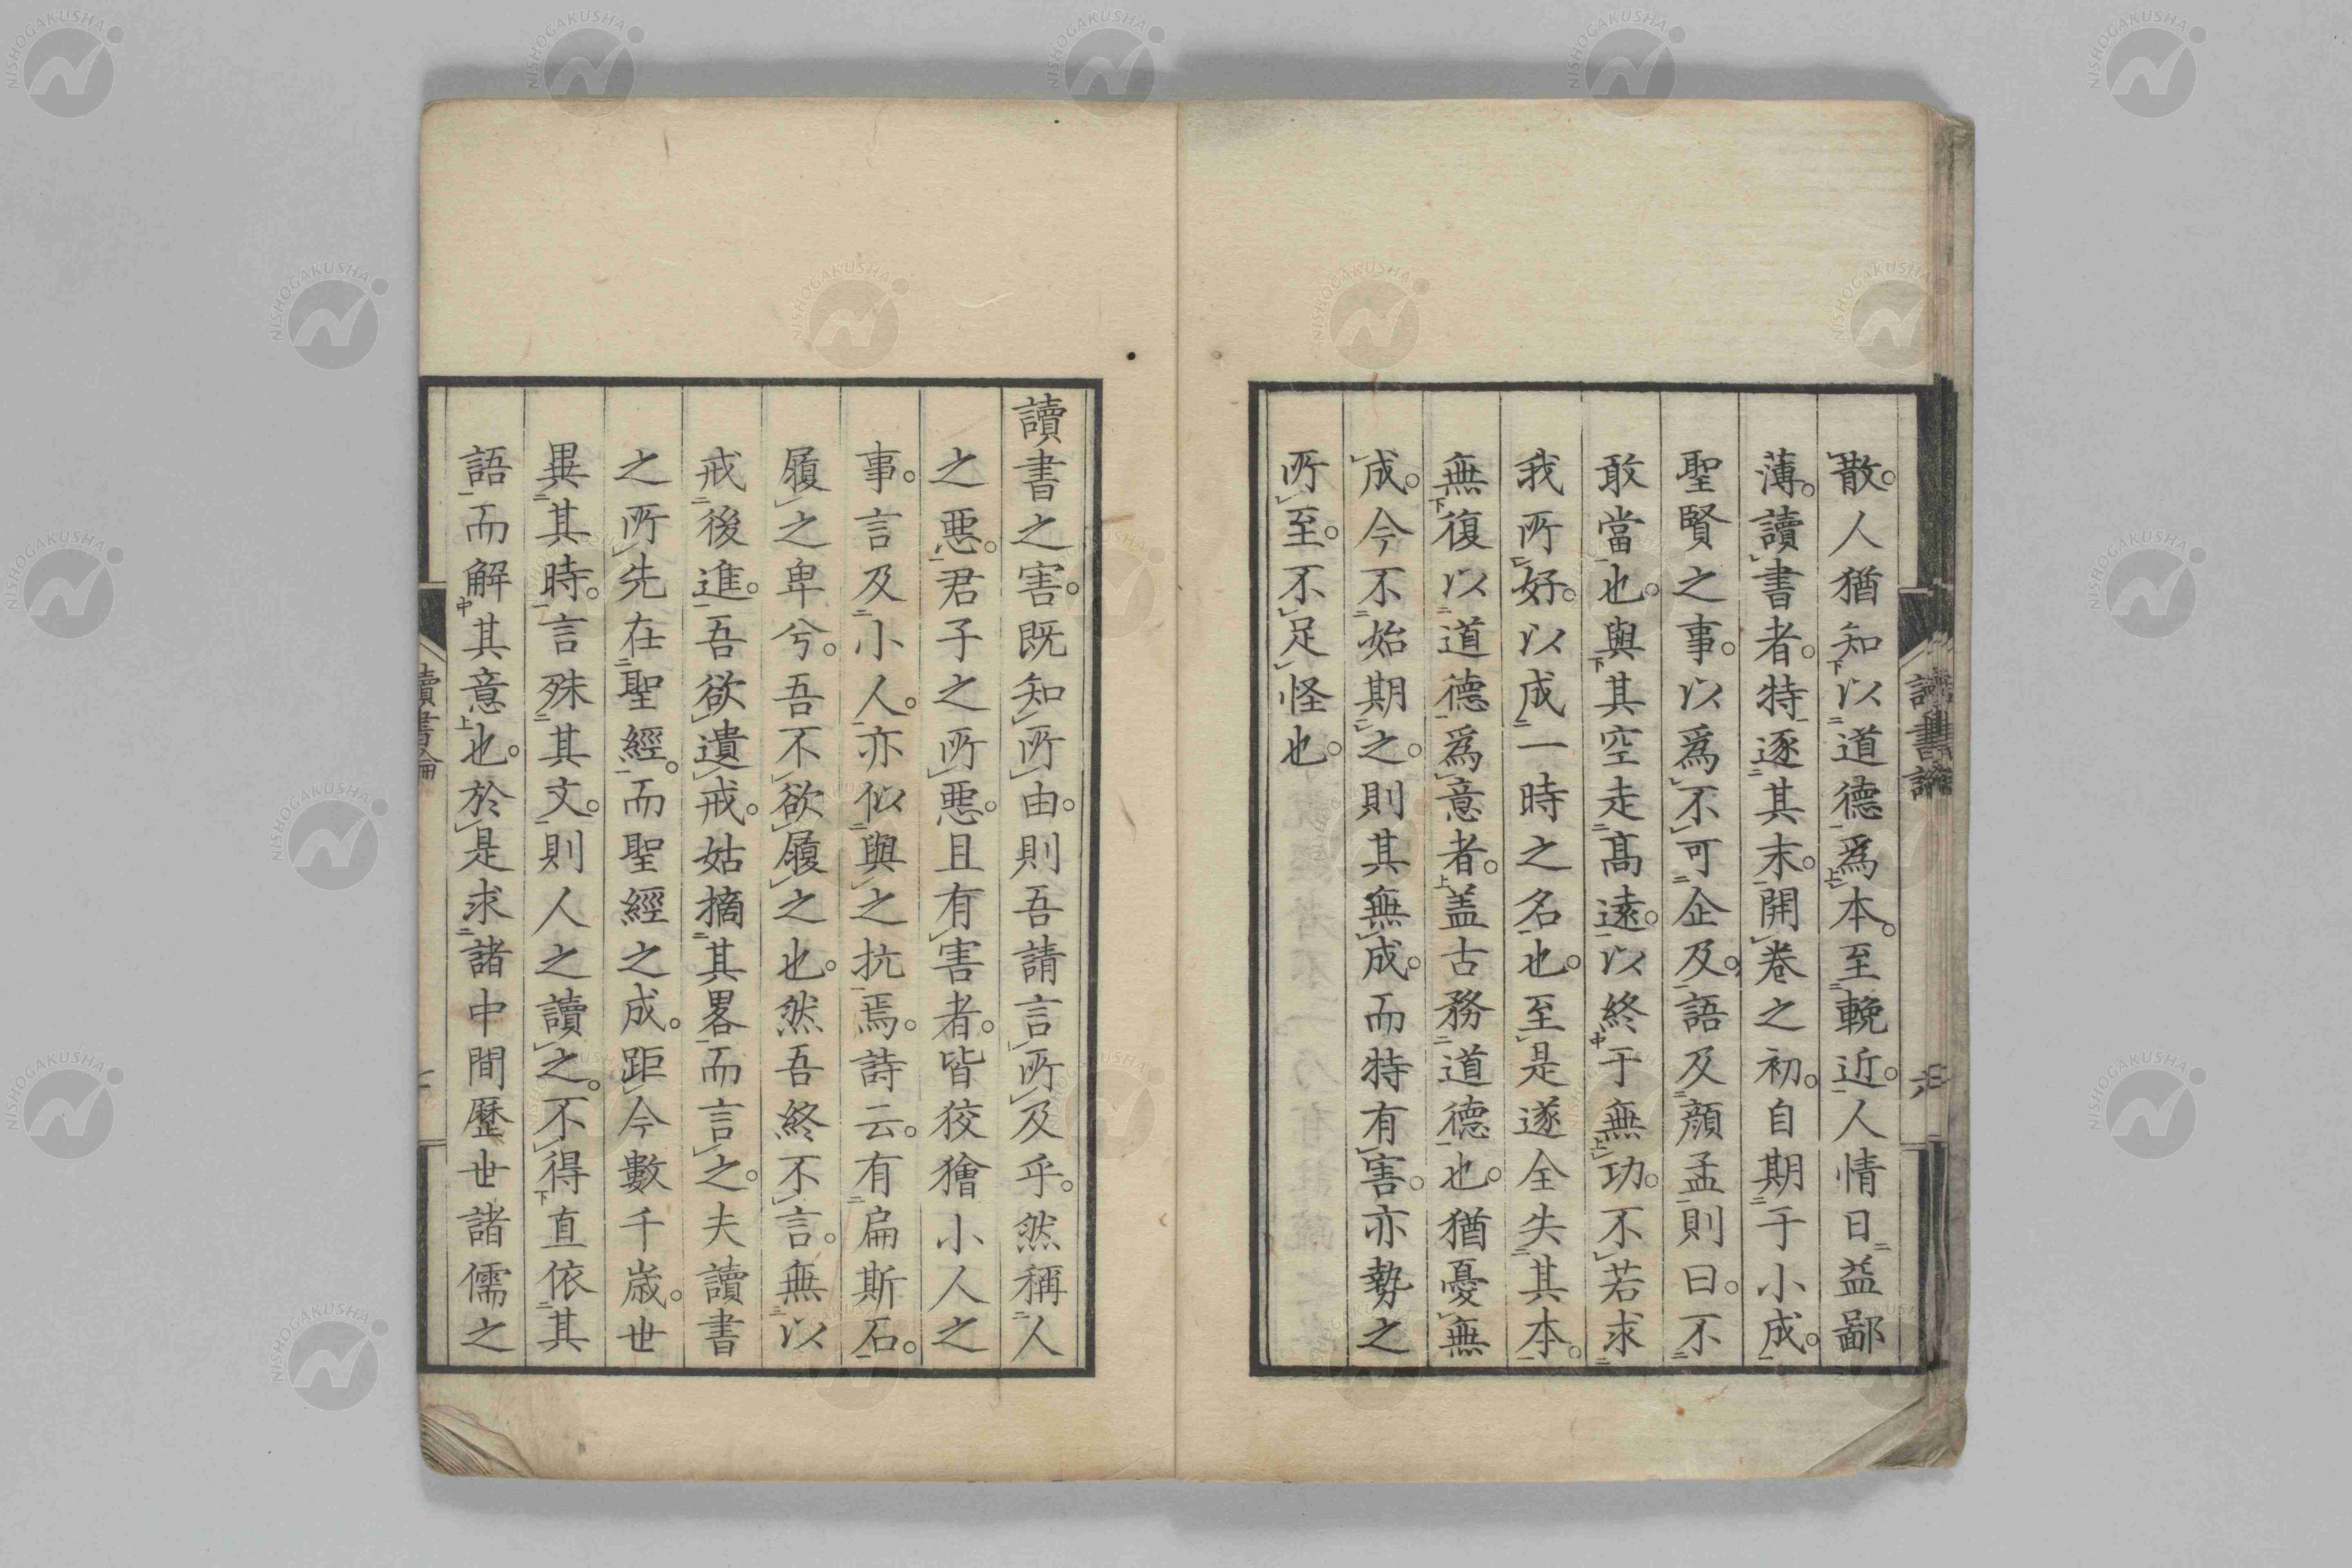 散。人猶知以道德爲本。至輓近。人情日益鄙
薄。讀書者。特逐其末。開卷之初。自期于小成。
聖賢之事。以爲不可企及。語及顔孟則曰。不
敢當也。與其空走髙遠。以終于無功。不若求
我所好。以成一時之名也。至是遂全失其本。
無復以道德爲意者。盖古務道德也。猶憂無
成。今不始期之。則其無成。而特有害。亦勢之
所至。不足怪也。
讀書之害。既知所由。則吾請言所及乎。然稱人
之惡。君子之所惡。且有害者。皆狡獪小人之
事。言及小人。亦似與之抗焉。詩云。有扁斯石。
履之卑兮。吾不欲履之也。然吾終不言。無以
戒後進。吾欲遺戒。姑摘其畧而言之。夫讀書
之所先在聖經。而聖經之成。距今數千歳。世
異其時。言殊其文。則人之讀之。不得直依其
語而解其意也。於是求諸中間歷世諸儒之
讀書論
讀書論
六
NISHOGAKUSHA